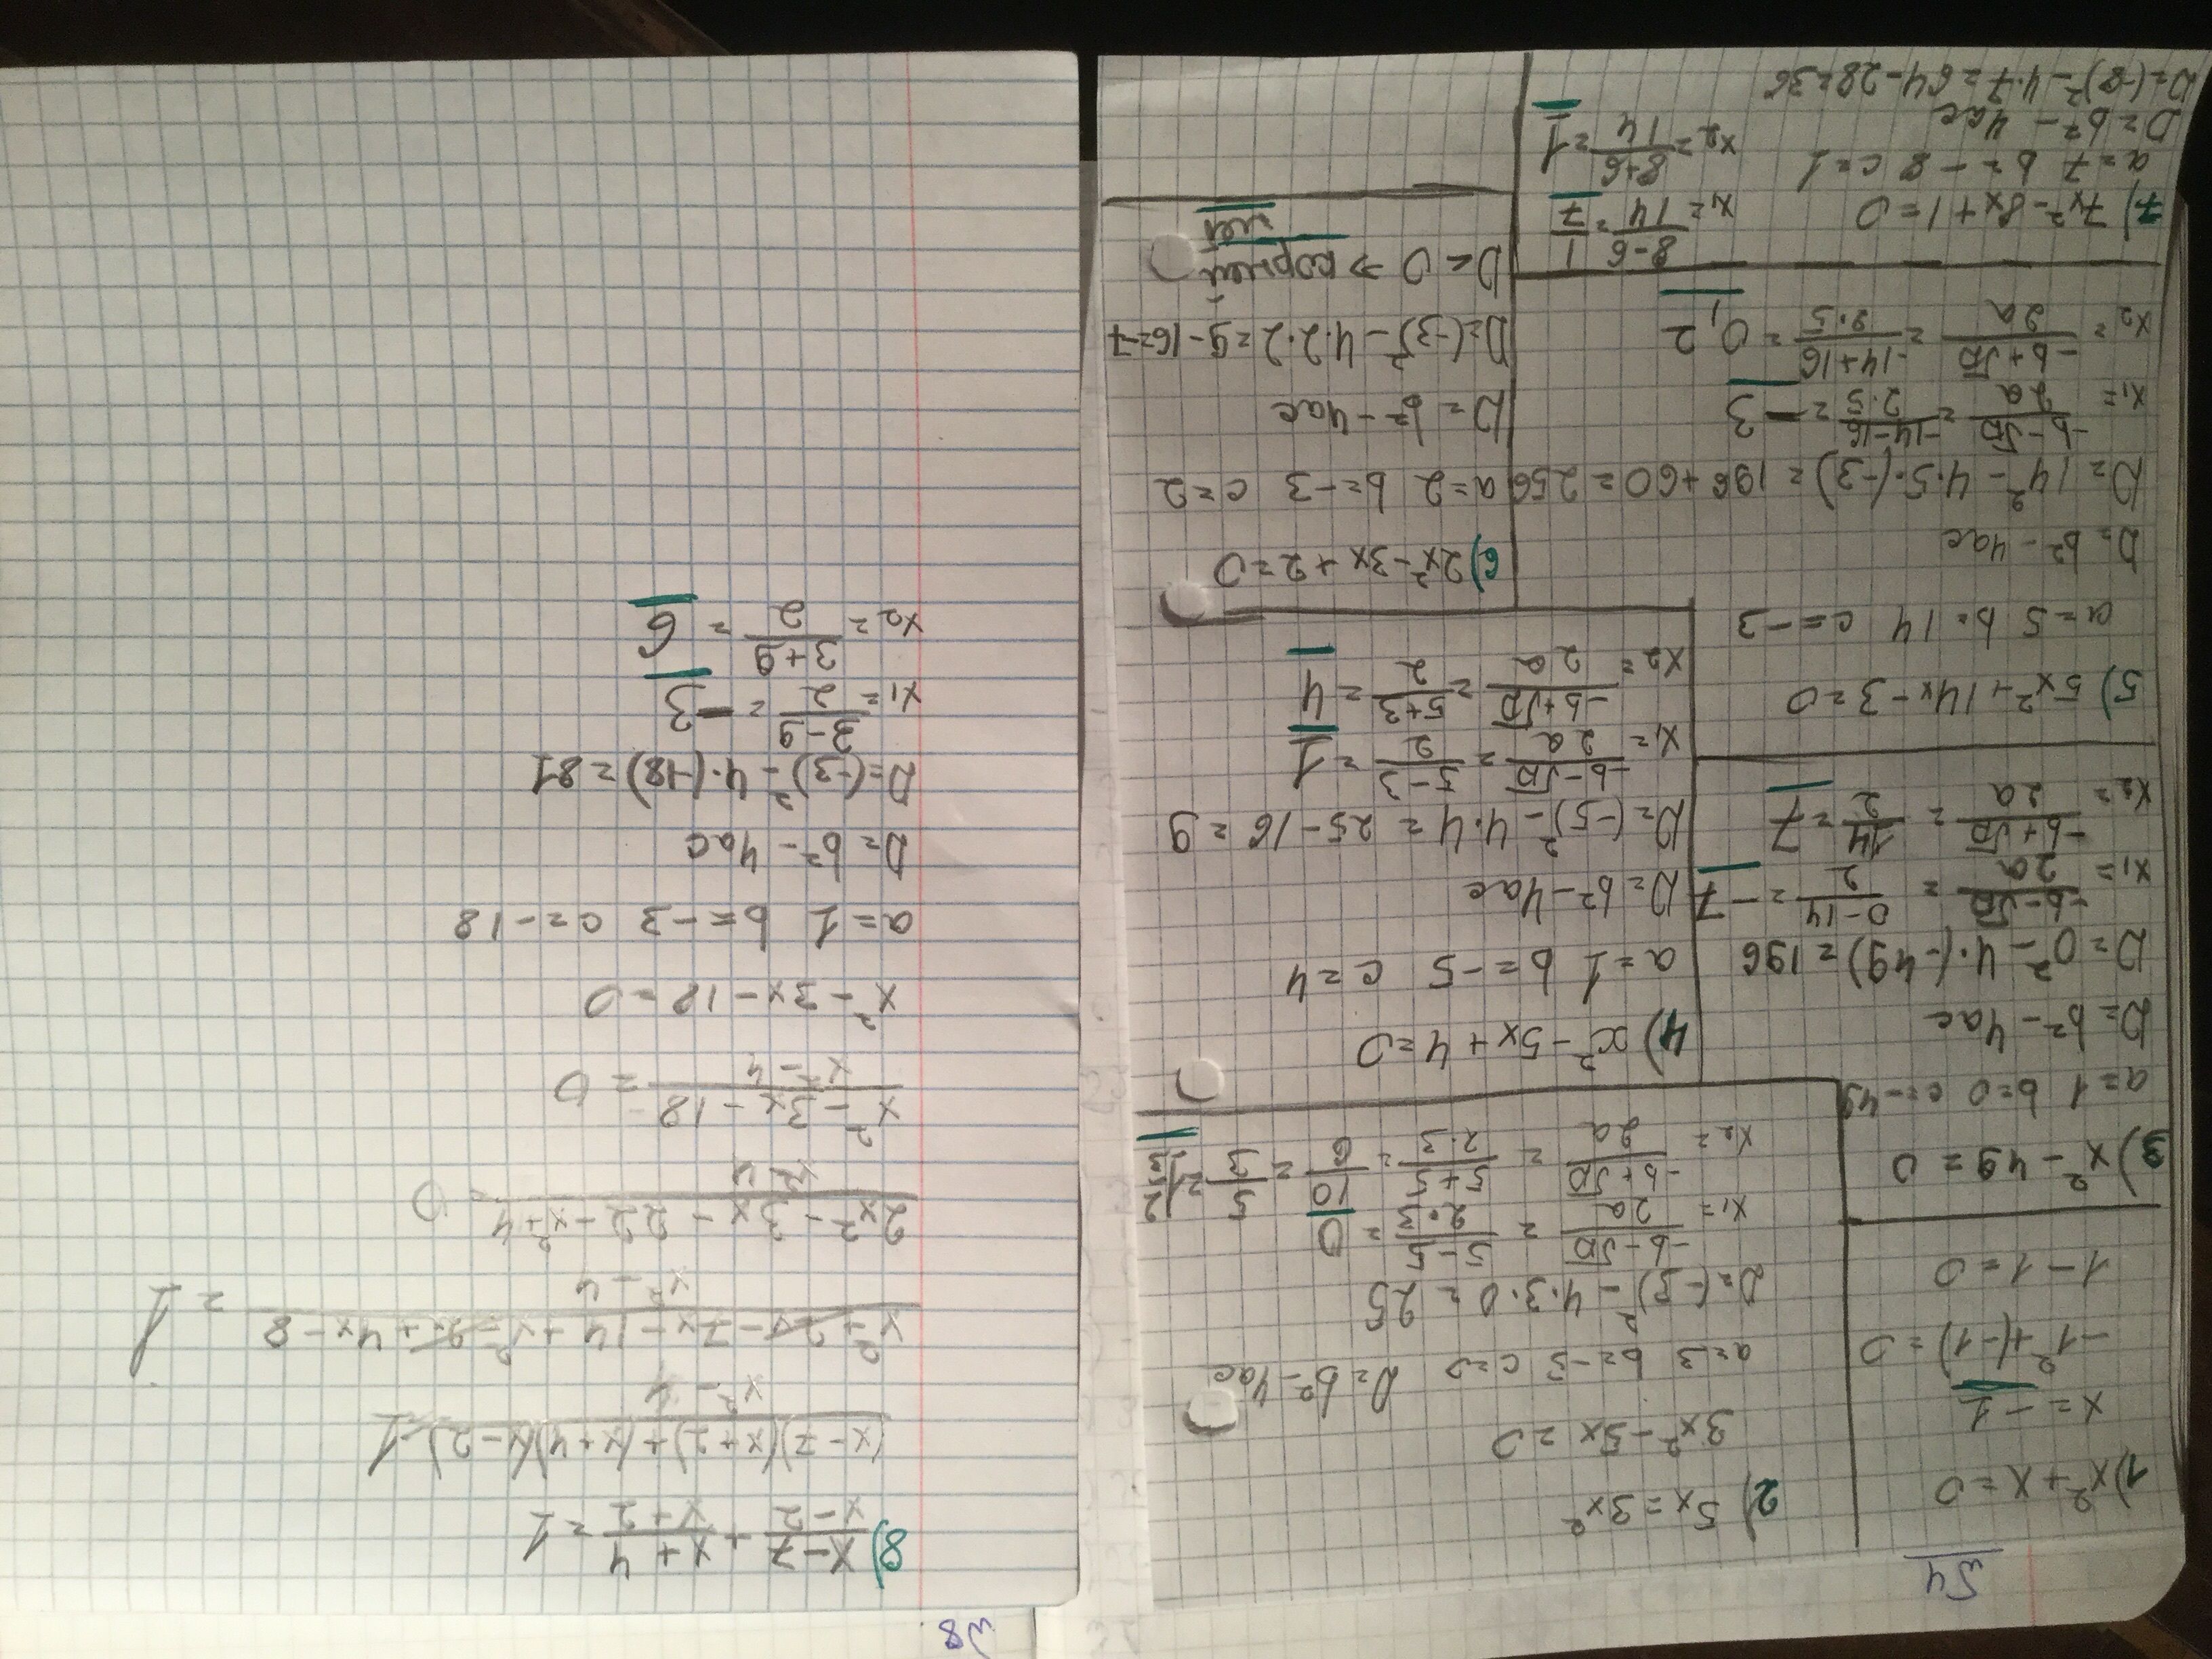 54
1) x² + x = 0
x = -1
-1² + (-1) = 0
1 - 1 = 0
2) 5x = 3x²
3x² - 5x = 0
a = 3 b = -3 c = 0 D = b² - 4ac
D = (-5)² - 4·3·0 = 25
x₁ = (-b-√D)/2a = (5-5)/2·3 = 0
x₂ = (-b+√D)/2a = (5+5)/2·3 = 10/6 = 5/3 = 1 2/3
3) x² - 49 = 0
a = 1 b = 0 c = -49
D = b² - 4ac
D = 0² - 4·(-49) = 196
x₁ = (-b-√D)/2a = (0-14)/2 = -7
x₂ = (-b+√D)/2a = 14/2 = 7
4) x² - 5x + 4 = 0
a = 1 b = -5 c = 4
D = b² - 4ac
D = (-5)² - 4·4 = 25 - 16 = 9
x₁ = (-b-√D)/2a = (5-3)/2 = 1
x₂ = (-b+√D)/2a = (5+3)/2 = 4
5) 5x² + 14x - 3 = 0
a = 5 b = 14 c = -3
D = b² - 4ac
D = 14² - 4·5·(-3) = 196 + 60 = 256
x₁ = (-b-√D)/2a = (-14-16)/2·5 = -3
x₂ = (-b+√D)/2a = (-14+16)/2·5 = 0,2
6) 2x² - 3x + 2 = 0
a = 2 b = -3 c = 2
D = b² - 4ac
D = (-3)² - 4·2·2 = 9 - 16 = -7
D < 0 => корней
нет
7) 7x² - 8x + 1 = 0
a = 7 b = -8 c = 1
D = b² - 4ac
D = (-8)² - 4·7 = 64 - 28 = 36
x₁ = (8-6)/14 = 1/7
x₂ = (8+6)/14 = 1
8) (x-7)/(x-2) + (x+4)/(x+2) = 1
((x-7)(x+2)+(x+4)(x-2))/(x²-4) = 1
(x² + 2x - 7x - 14 + x² - 2x + 4x - 8)/(x²-4) = 1
(2x² - 3x - 22 - x² + 4)/(x²-4) = 0
(x² - 3x - 18)/(x²-4) = 0
x² - 3x - 18 = 0
a = 1 b = -3 c = -18
D = b² - 4ac
D = (-3)² - 4·(-18) = 81
x₁ = (3-9)/2 = -3
x₂ = (3+9)/2 = 6